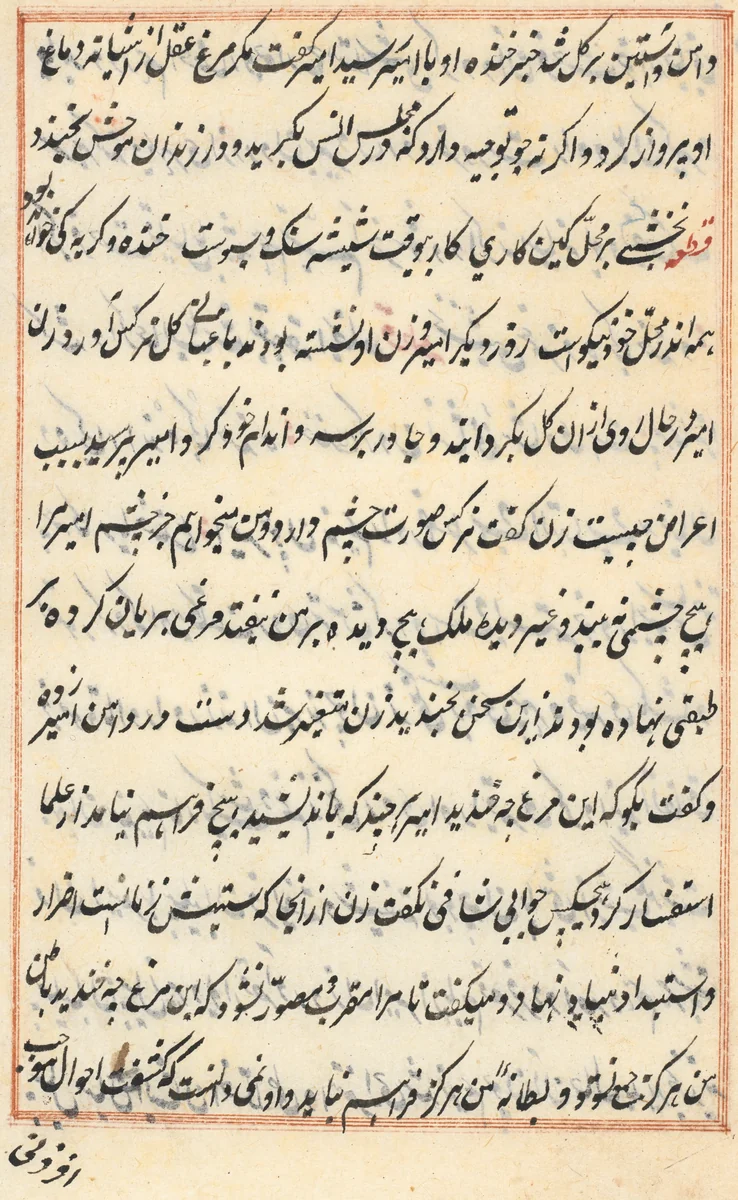 دامن و آستین بر کل شد خبر خنده او با امیر رسید امیر کفت مکر مرغ عقل از اشیانه دماغ
او پرواز کرد و اکر نه چه توجیه دارد که در مجلس انس بکرید و در زندان موحش بخندد
قطعه نخشبی بر محل کین کاری کار بیوقت شیشه سنک و سبوست خنده و کریه کی بود
همه اندر محل خود نیکوست روز دیکر امیر و زن او نشسته بودند باغبانی کل نرکس آورد زن
امیر در حال روی ازان کل بکردانید و چادر بر سه و اندام خود کرد امیر پرسید سبب
اعراض چیست زن کفت نرکس صورت چشم دارد و من میخواهم جز چشم امیر مرا
هیچ چشمی نه بیند و غیر دیده ملک هیچ دیده بر من نیفتد مرغی بریان کرده بر
طبقی نهاده بودند ازین سخن بخندید زن متغیر شد دست در دامن امیر زده
و کفت بکو که این مرغ چه خندید امیر هر چند که باندیشید هیچ فراهم نیامد از علما
استفسار کرد هیچکس جوابی شافی نکفت زن از انجا که ستیهش زنانست اصرار
و استبداد بنیاد نهاد و میکفت تا مرا مقرر و مصور نشود که این مرغ چه خندید باطن
من هرکز نشود و بطانه من هرکز فراهم نیاید و او نمی دانست که کشف احوال موجب
افزونی